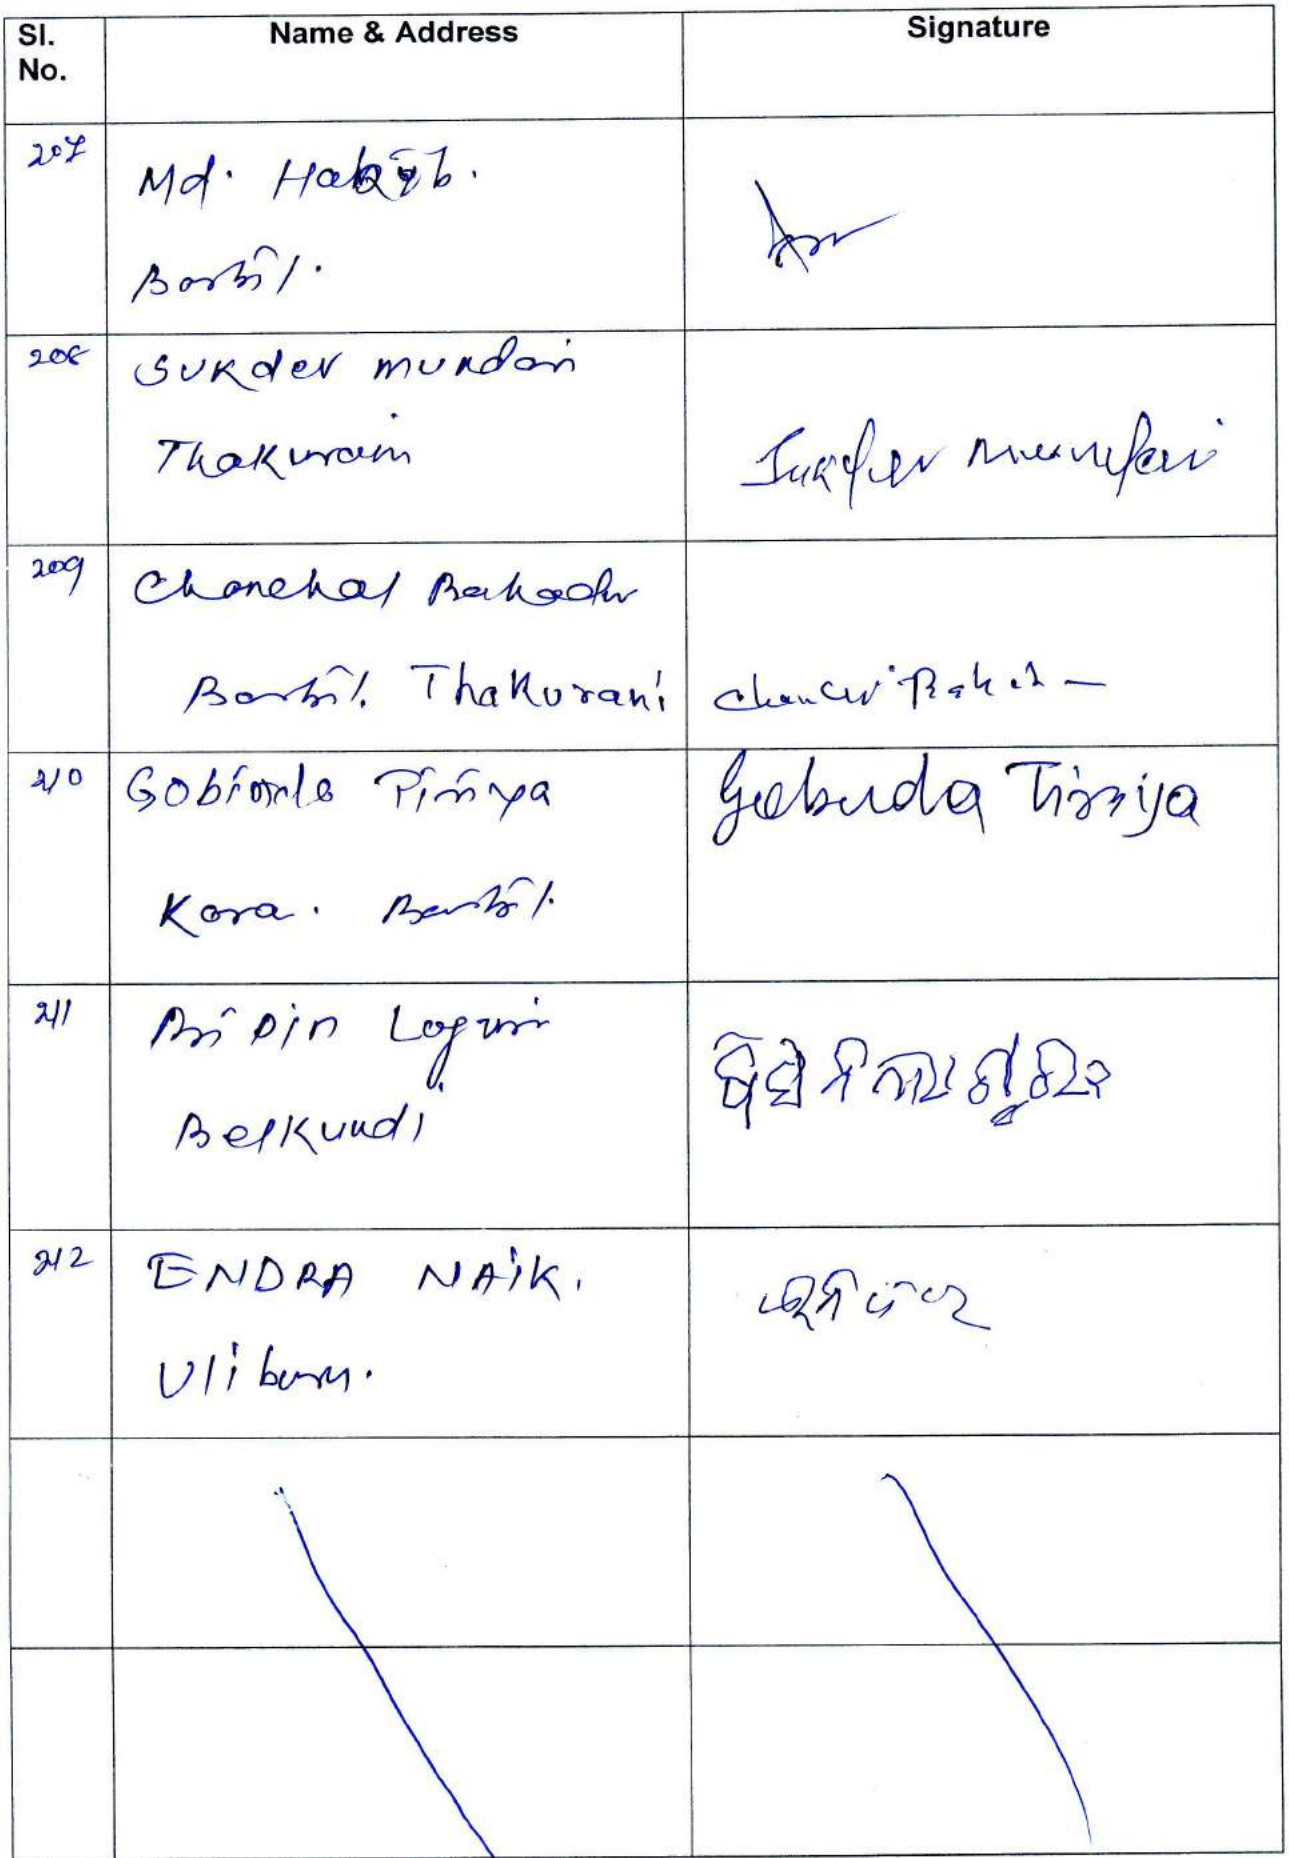 Sl. No. Name & Address Signature
207 Md. Habib.
Barbil.
208 Sukdev mundari
Thakurani Sukdev Mundari
209 Chanchal Bahadur
Barbil. Thakurani
210 Gobinda Tiriya Gobinda Tiriya
Kora. Barbil.
211 Bipin Laguri
Belkundi
212 ENDRA NAIK.
Uliburu.